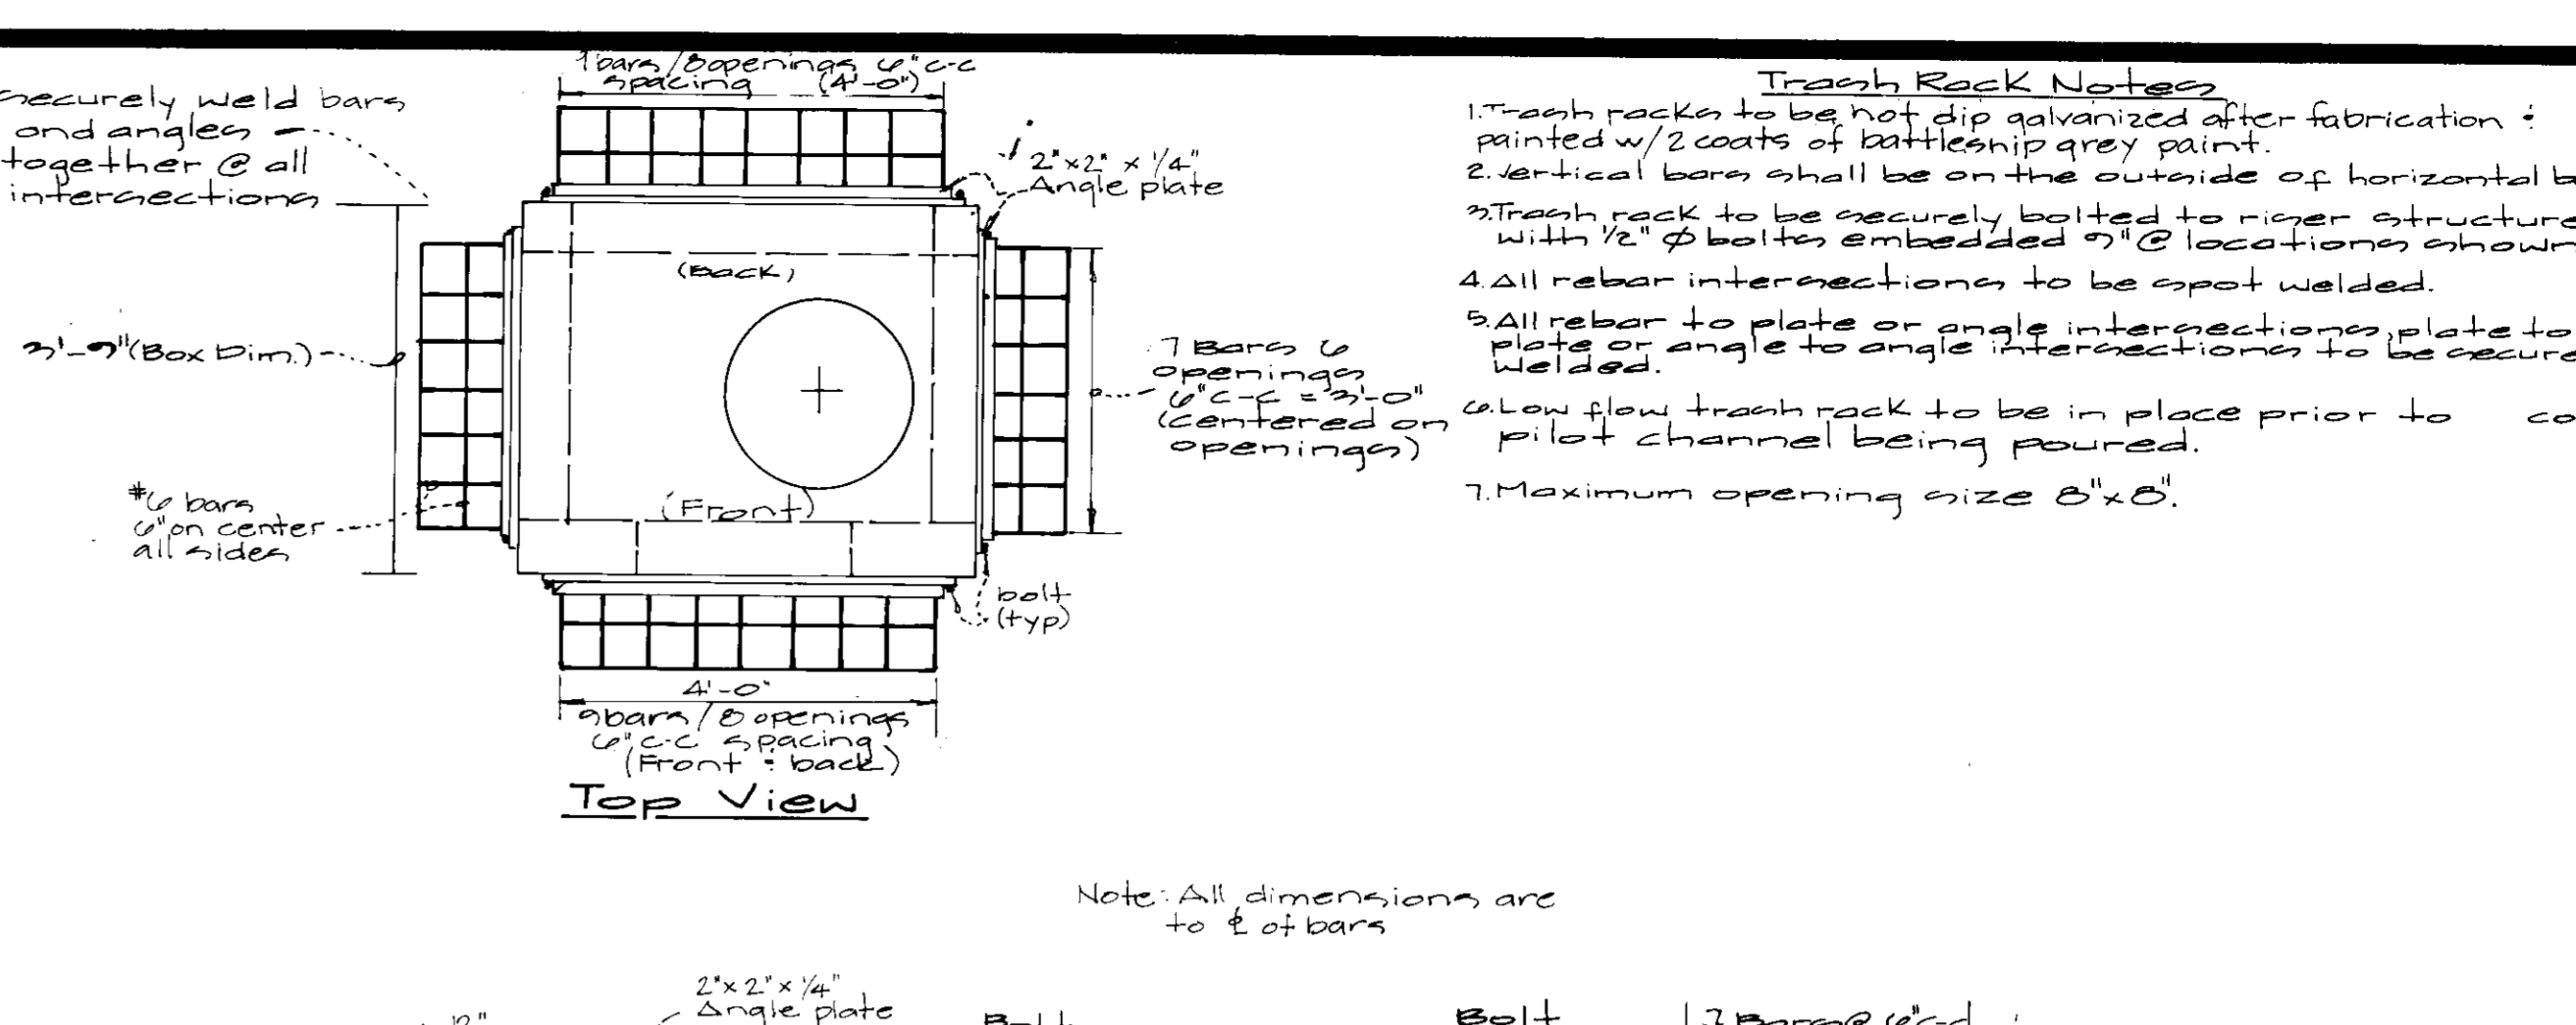 9 bars/8 openings 6" c-c
spacing (4'-0")
securely weld bars
and angles
together @ all
intersections
2"x2" x 1/4"
Angle plate
(Back)
3'-9" (Box Dim.)
7 Bars 6
openings
6" c-c = 3'-0"
(centered on
openings)
#6 bars
6" on center
all sides
(Front)
bolt
(typ)
4'-0"
9 bars/8 openings
6" c-c spacing
(Front & back)
Top View
Trash Rack Notes
1. Trash racks to be hot dip galvanized after fabrication &
painted w/2 coats of battleship grey paint.
2. Vertical bars shall be on the outside of horizontal
3. Trash rack to be securely bolted to riser structure
with 1/2" Ø bolts embedded @ locations shown
4. All rebar intersections to be spot welded.
5. All rebar to plate or angle intersections, plate to
plate or angle to angle intersections to be secure
welded.
6. Low flow trash rack to be in place prior to co
pilot channel being poured.
7. Maximum opening size 8"x8".
Note: All dimensions are
to ℄ of bars
2"x2"x1/4"
Angle plate
12"
Bolt
Bolt
7 Bars @ 6" c-c